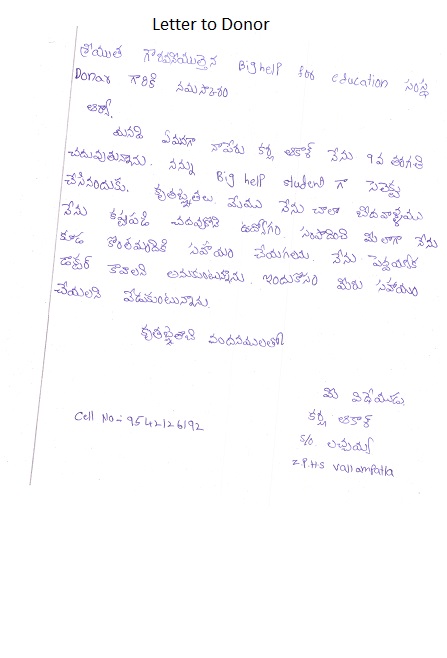 Letter to Donor
గౌరవనీయులైన Big help for education సంస్థ
Donar గారికి నమస్కారం
ఆర్యా,
అనగా నాపేరు కర్ల ఆకాశ్ నేను 9వ తరగతి
చదువుతున్నాను. నన్ను Big help student గా సెలెక్టు
చేసినందుకు. కృతజ్ఞతలు. మేము నేను చాలా బీదవాళ్ళము
నేను కష్టపడి చదువుకొని ఉద్యోగం సంపాదించి మీలాగా నేను
కూడ కొంతమందికి సహాయం చేయగలను. నేను పెద్దయ్యాక
డాక్టర్ కావాలని అనుకుంటున్నాను. ఇందుకోసం మీరు సహాయం
చేయలని వేడుకుంటున్నాను.
వందనములతో
మీ విదేయుడు
కర్ల ఆకాశ్
S/o లచ్చయ్య
Z.P.H.S Vallampatla
Cell No:- 9542126192